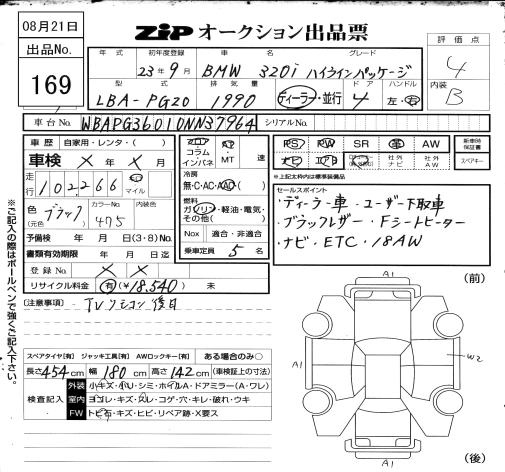 08月21日
ZiP オークション出品票
出品No.
169
年式 初年度登録 車名 グレード
23年9月 BMW 320i ハイラインパッケージ
評価点
4
内装
B
型式 排気量 ドア ハンドル
LBA-PG20 1990 ディーラー・並行 4 左・右
車台No. WBAPG36010NN37964 シリアルNo.
車歴 自家用・レンタ・( )
車検 × 年 × 月
走行 102,266 km マイル
色(元色) ブラック カラーNo. 475 内装色
予備検 年 月 日(3・8)No.
書類有効期限 年 月 日迄
登録No. × ×
リサイクル料金 有 ¥18,540 未
フロア コラム インパネ AT MT 速
冷房
無・C・AC・AAC
燃料
ガソリン・軽油・電気・その他( )
Nox 適合・非適合
乗車定員 5 名
PS PW SR 革 AW
ナビ 社外ナビ 社外AW
新車時保証書
スペアキー
※上記太枠内は標準装備品
セールスポイント
・ディーラー車・ユーザー下取車
・ブラックレザー・Fシートヒーター
・ナビ・ETC・18AW
[注意事項]
・TVリモコン後日
スペアタイヤ[有] ジャッキ工具[有] AWロックキー[有] ある場合のみ○
長さ454cm 幅180cm 高さ142cm (車検証上の寸法)
検査記入
外装 小キズ・小U・シミ・ホイルA・ドアミラー(A・ワレ)
室内 ヨゴレ・キズ・スレ・コゲ・穴・キレ・破れ・ウキ
FW トビ石・キズ・ヒビ・リペア跡・X要ス
A1
(前)
A1
W2
A1
(後)
※ご記入の際はボールペンで強くご記入下さい。